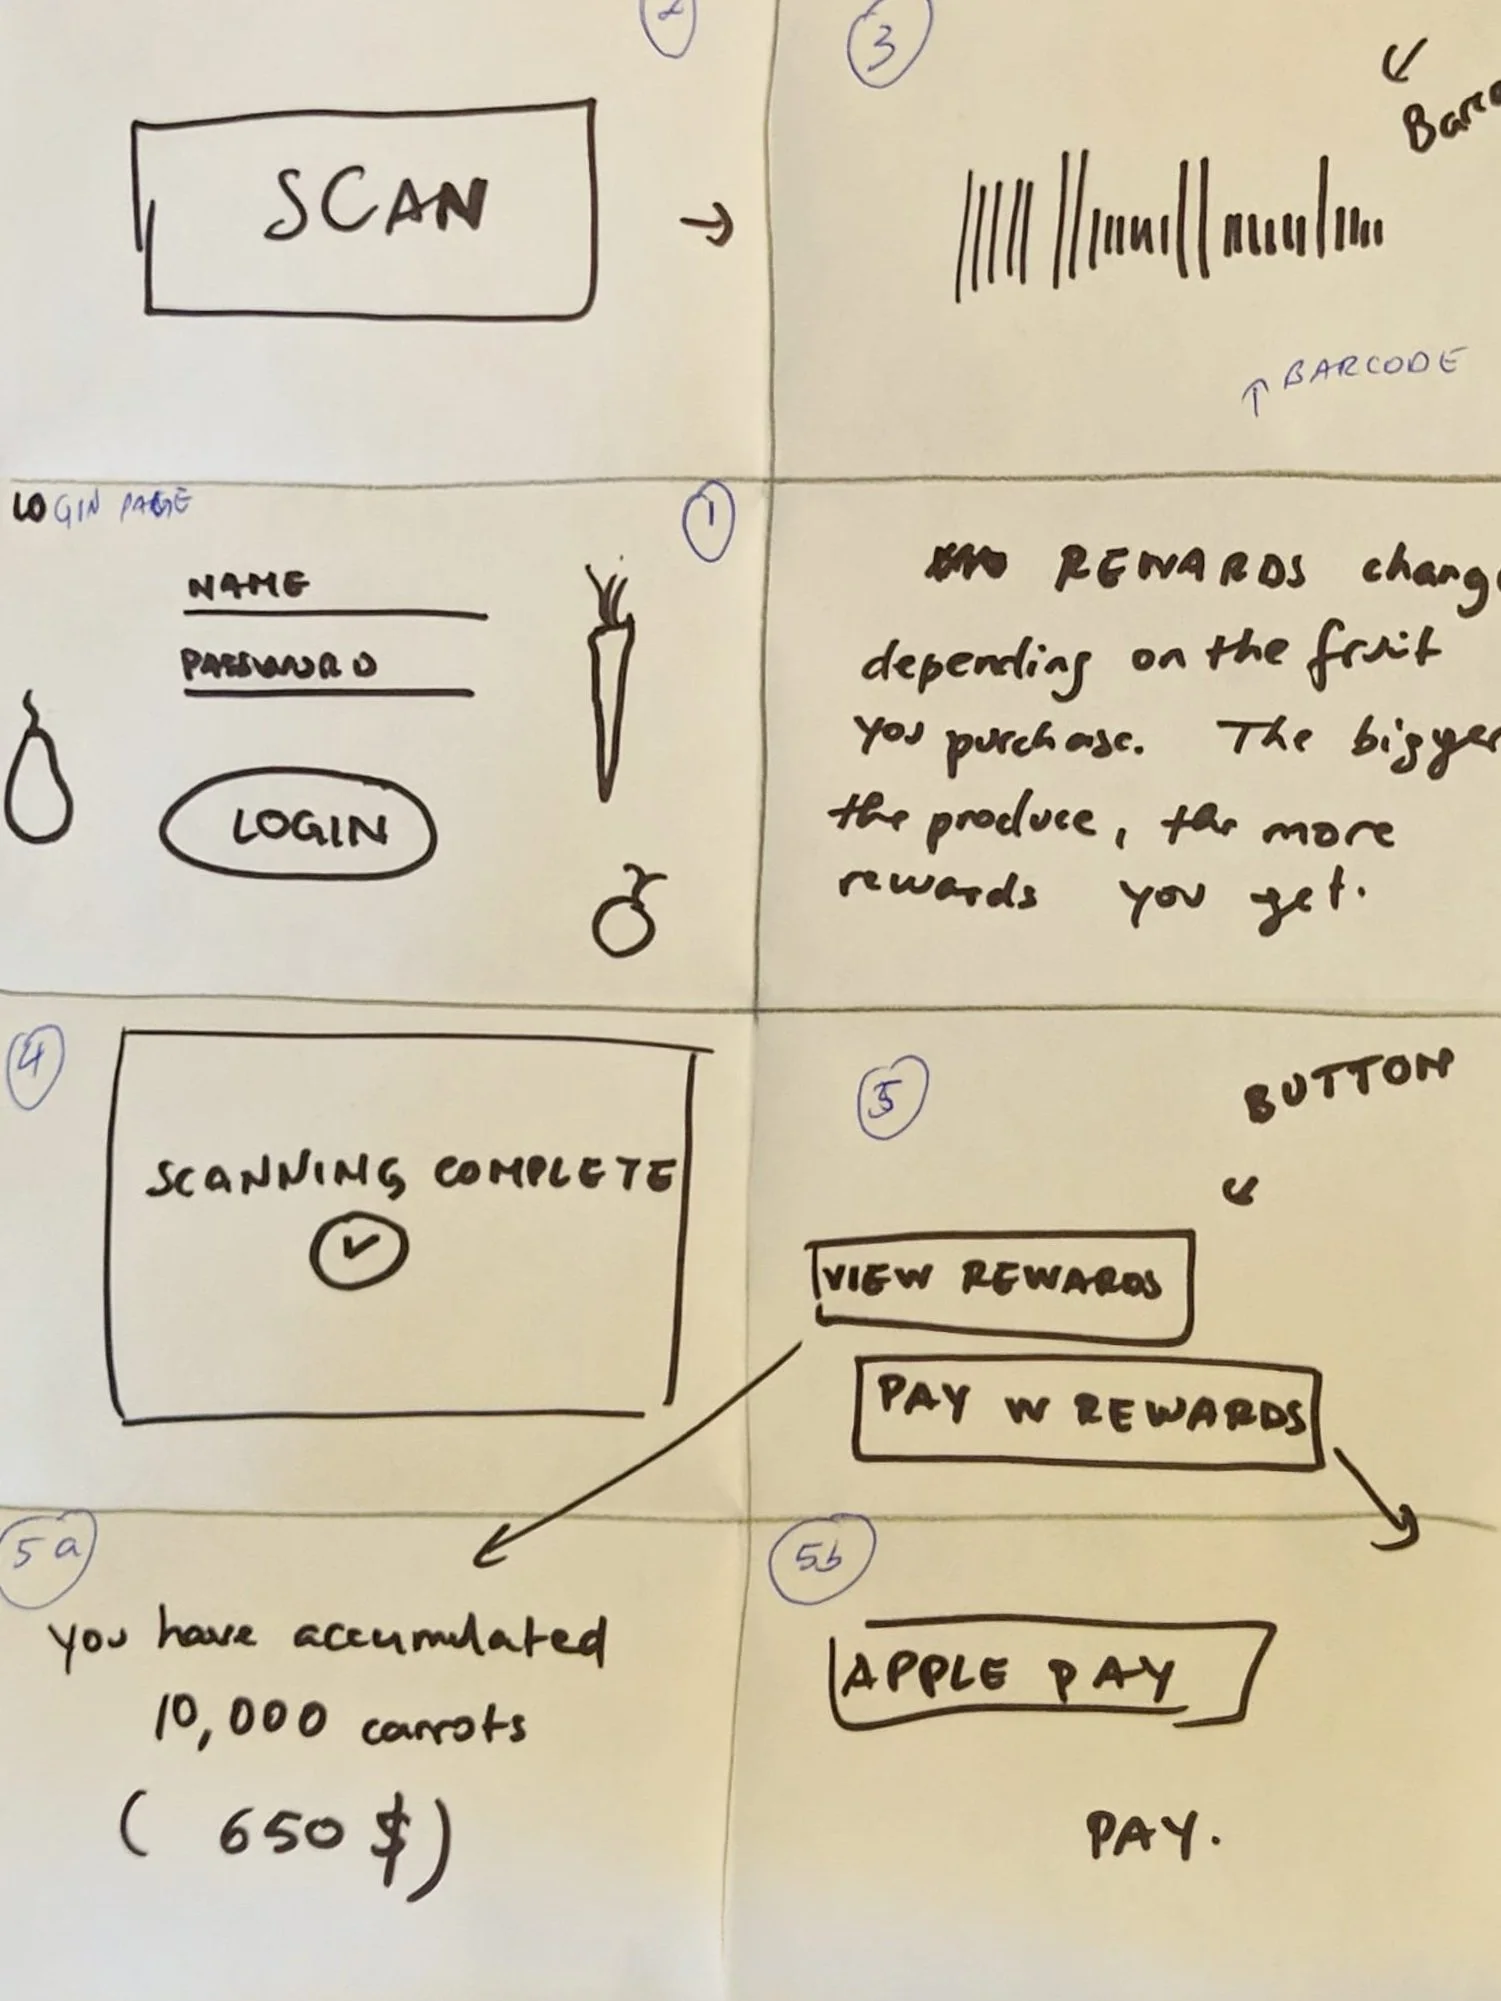 2
SCAN
→
3
↙
↑ BARCODE
LOGIN PAGE
1
NAME
PASSWORD
LOGIN
REWARDS
depending on the fruit
you purchase. The bigger
the produce, the more
rewards you get.
4
SCANNING COMPLETE
5
BUTTON
VIEW REWARDS
PAY W REWARDS
5a
you have accumulated
10,000 carrots
( 650 $ )
5b
APPLE PAY
PAY.